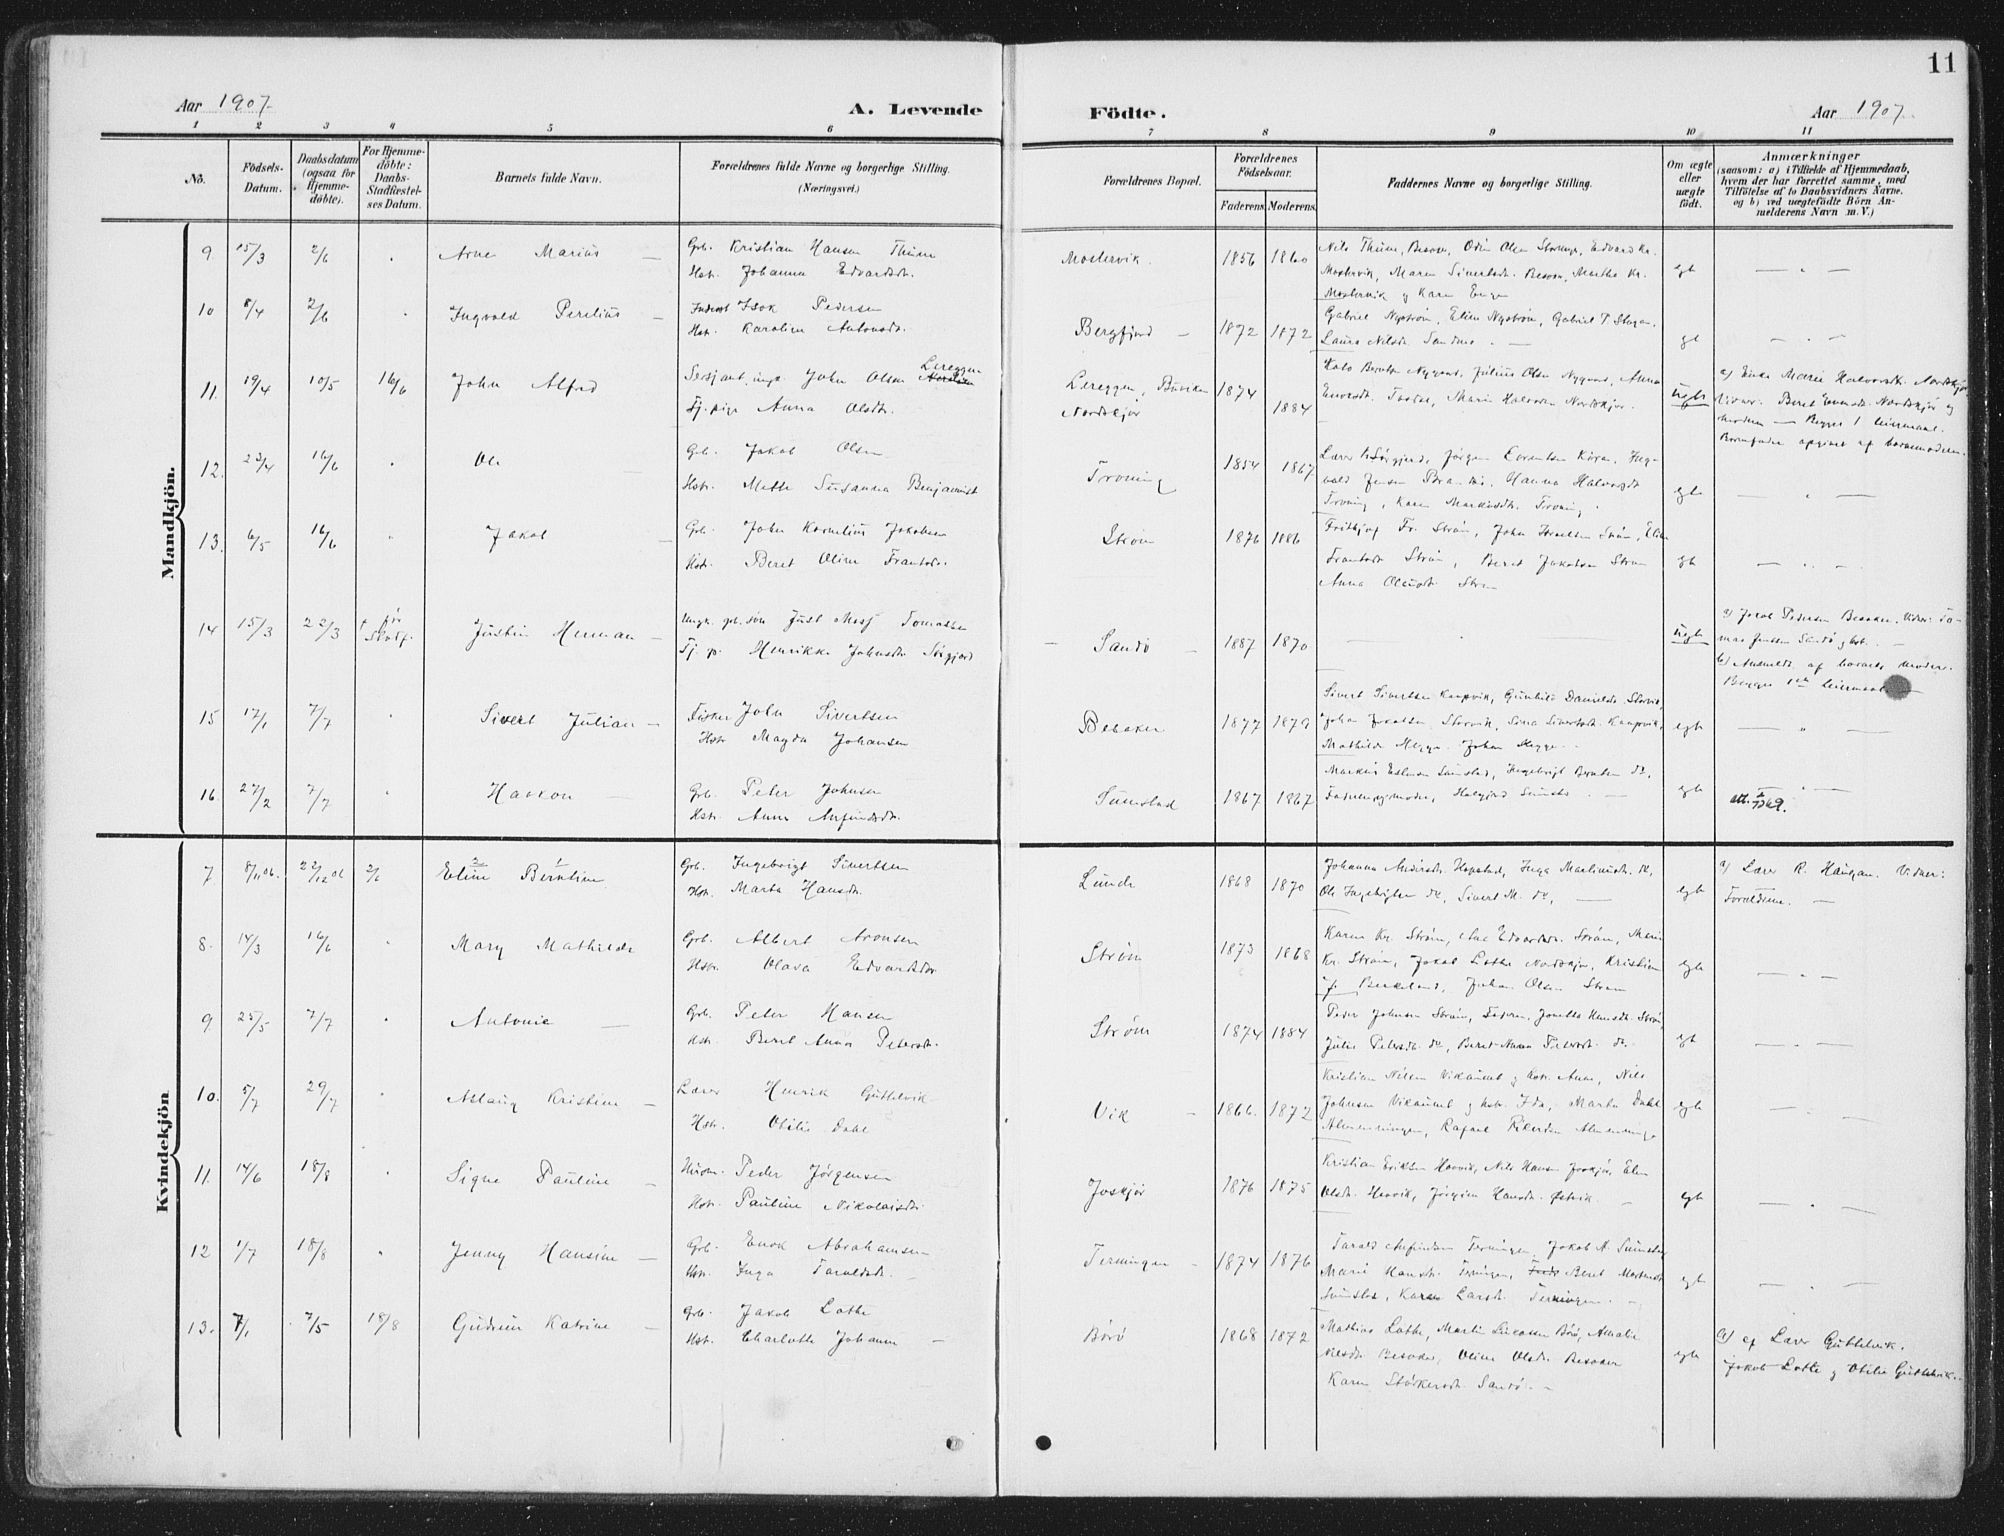 11
Aar 1907.
A. Levende
Födte.
Aar 1907.
1 2 3 4 5 6 7 8 9 10 11
No.
Födsels-
Datum.
Daabsdatum
(ogsaa for
Hjemme-
döbte).
For Hjemme-
döbte:
Daabs-
Stadfæstel-
ses Datum.
Barnets fulde Navn.
Forældrenes fulde Navne og borgerlige Stilling.
(Næringsvei.)
Forældrenes Bopæl.
Forældrenes
Födselsaar.
Faderens. Moderens.
Faddernes Navne og borgerlige Stilling.
Om ægte
eller
uægte
födt.
Anmærkninger
(saasom: a) i Tilfælde af Hjemmedaab,
hvem der har forrettet samme, med
Tilföielse af to Daabsvidners Navne.
og b) ved uægtefödte Börn An-
melderens Navn m. V.)
Mandkjön.
9 15/3 2/6 " Arne Marius —
Grb. Kristian Hansen Thime
Hst. Johanna Edvardsdr.
Mostervik. 1856 1860
Nils Thime, Besvar, Odin Olsen Storunge, Edvard Kr.
Mostervik, Maren Sivertsdr. Besvar, Marthe Kr.
Mostervik og Karen
egt — " —
10 8/4 2/6 " Ingvald Perelius —
Inderst Isak Pedersen
Hst. Karoline Antonsdr.
Bergfjord — 1872 1872
Gabriel Nyström, Eline Nyström, Gabriel P.
Laura Nilsdr. Sandnes. —
egt — " —
11. 19/4 10/5 16/6 John Alfred
Sersjant, ungk. John Olsen Lereggen
Tj. pige Anna Olsdr.
Lereggen, Buviken
Nordskjør
1874
1884
Nygaard, Julius Olsen Nygaard, Anna
Enoksdr. Marie Halvorsen Nordskjør.
uegte
a) Enke Marie Halvorsdr. Nordskjør
Vidner: Beret Nordskjør og
moderen — Begges 1 leiermaal.
Barnefader opgivet af barnemoderen.
12. 23/4 16/6 " Ole —
Grb. Jakob Olsen
Hstr. Mette Susanna Benjaminsdt
Trøning 1854 1867
Lærer Sörgjerd, Jörgen Lorentsen Kiran, Ing-
vald Jensen Hanna Halvorsdt
Trøning, Karen Markusdt. Trøning.
egte — " —
13. 6/5 16/6 " Jakob —
Grb. John Kornelius Jakobsen
Hst. Beret Oline Frantsdr.
Strøm 1876 1886
Fritjof Fr. Strøm, John Israelsen Strøm, Eline
Frantsdr Strøm, Beret Jakobsen Strøm
Anna Strøm
egt — " —
14 15/3 22/3
Justin Herman —
Ungk. gb. søn Just Tomassen
Tj. p. Henrikke Johnsdr. Sörgjerd
— Sandö — 1887 1870
—
uegt
a) Jakob Pedersen Besaker. Vidner: To-
mas Jensen Sandö og hst. —
b) Anmeldt af barnets moder.
Begges 1ste leiermaal —
15 17/1 7/7 " Sivert Julian —
Fisker John Sivertsen
Hst. Magda Johansen
Besaker 1877 1879
Sivert Sivertsen Kaapvik, Gunhild Danielsdr. Storvik,
Johan Jakobsen Storvik, Sina Sivertsdt. Kaapvik,
Mathilde Hegge. Johan Hegge.
egte — " —
16. 27/2 7/7 " Haakon —
Grb. Peter Johnsen
Hst. Anna Arfindsdr.
Sumstad 1867 1867
Markus Sumstad, Ingebrigt Berntsen do,
Faderen og moder, Sumstad. —
egt — " —
att. 2/7 69.
Kvindekjön
7 8/11 06. 23/12 06 2/6 Eline Berntine
Grb. Ingebrigt Sivertsen
Hst. Marta Hansdr.
Lunde 1868 1870
Johanna Andersdr. Hopstad, Inga Martinusdt. do,
Ole Ingebrigtsen do, Sivert M. do, —
egte
a) Lærer R. Haugan. Vidner:
Forældrene. —
8. 14/3 16/6 " Mary Mathilde
Grb. Albert Aronsen
Hst. Olava Edvardsdr.
Strøm 1873 1868
Karen Kr. Strøm, Edvardsdr. Strøm, Marie
Kr. Strøm, Jakob Lothe Nordskjør, Kristian
J. Birkeland, Johan Olsen Strøm
egte — " —
9 25/5 7/7 " Antonie —
Grb. Peter Hansen
Hst. Beret Anna Petersdr.
Strøm 1874 1884
Peder Johnsen Strøm, Faderen, Jonette Hansdt. Strøm,
Julie Petersdt. do, Beret Anna Petersdt. do.
egt — " —
10. 5/7 29/7 " Aslaug Kristine —
Lærer Henrik Guttelvik
Hst. Otilie Dahl
Vik — 1866. 1872
Kristian Nilsen og hst. Anne, Nils
Johnsen og hst. Ida, Marta Dahl
Almenningen, Rafael Almenningen
egte — " —
11. 14/6 18/8 " Signe Pauline —
Peder Jørgensen
Hst. Pauline Nikolaisdr.
Joskjør 1876 1875
Kristian Eriksen Hoovik, Nils Hansen Joskjør, Elen
Olsdt. Hoovik, Jørgine Hansdt. Østvik. —
egte — " —
12 1/7 18/8 " Jenny Hansine —
Grb. Enok Abrahamsen
Hst. Inga Taraldsdr. —
Terningen — 1874 1876
Tarald Arfindsen Terningen, Jakob A. Sumstad,
Marie Hansdt. Terningen, Beret Mortensdt
Sumstad, Karen Larsdt. Terningen. —
egt — " —
13. 7/1 7/5 18/8 Gudrun Katrine —
Grb. Jakob Lothe
Hst. Charlotte Johanne —
Börö 1868 1872
Mathias Lothe, Martin Lukassen Börö, Amalie
Nilsdr Besaker, Oline Olsdr Besaker
Karen Størkersdt. Sandö. —
egte
a) af Lærer Guttelvik.
Jakob Lothe og Otilie Guttelvik. —